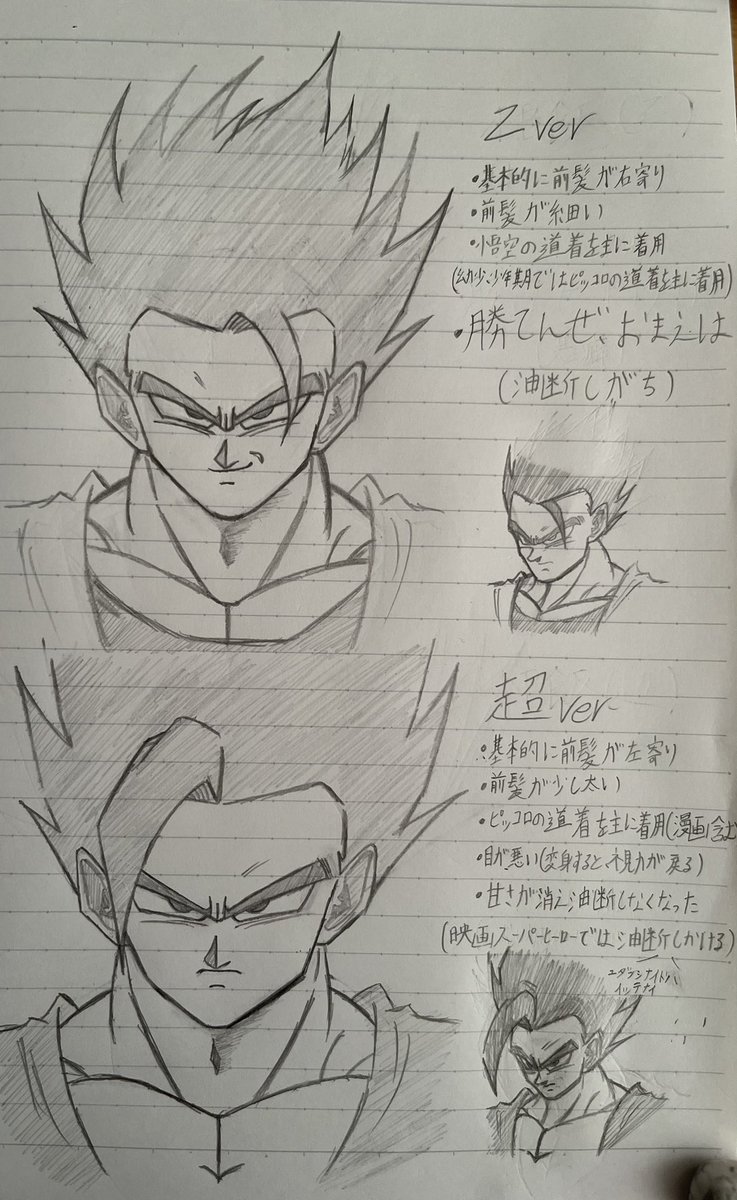 Z ver
・基本的に前髪が右寄り
・前髪が細い
・悟空の道着を主に着用
(幼少、少年期ではピッコロの道着を主に着用)
・勝てんぜ、おまえは
(油断しがち)
超 ver
・基本的に前髪が左寄り
・前髪が少し太い
・ピッコロの道着を主に着用(漫画含む
・目が悪い(変身すると、視力が戻る)
・甘さが消え油断しなくなった
(映画スーパーヒーローでは油断しかける)
イッテナイ